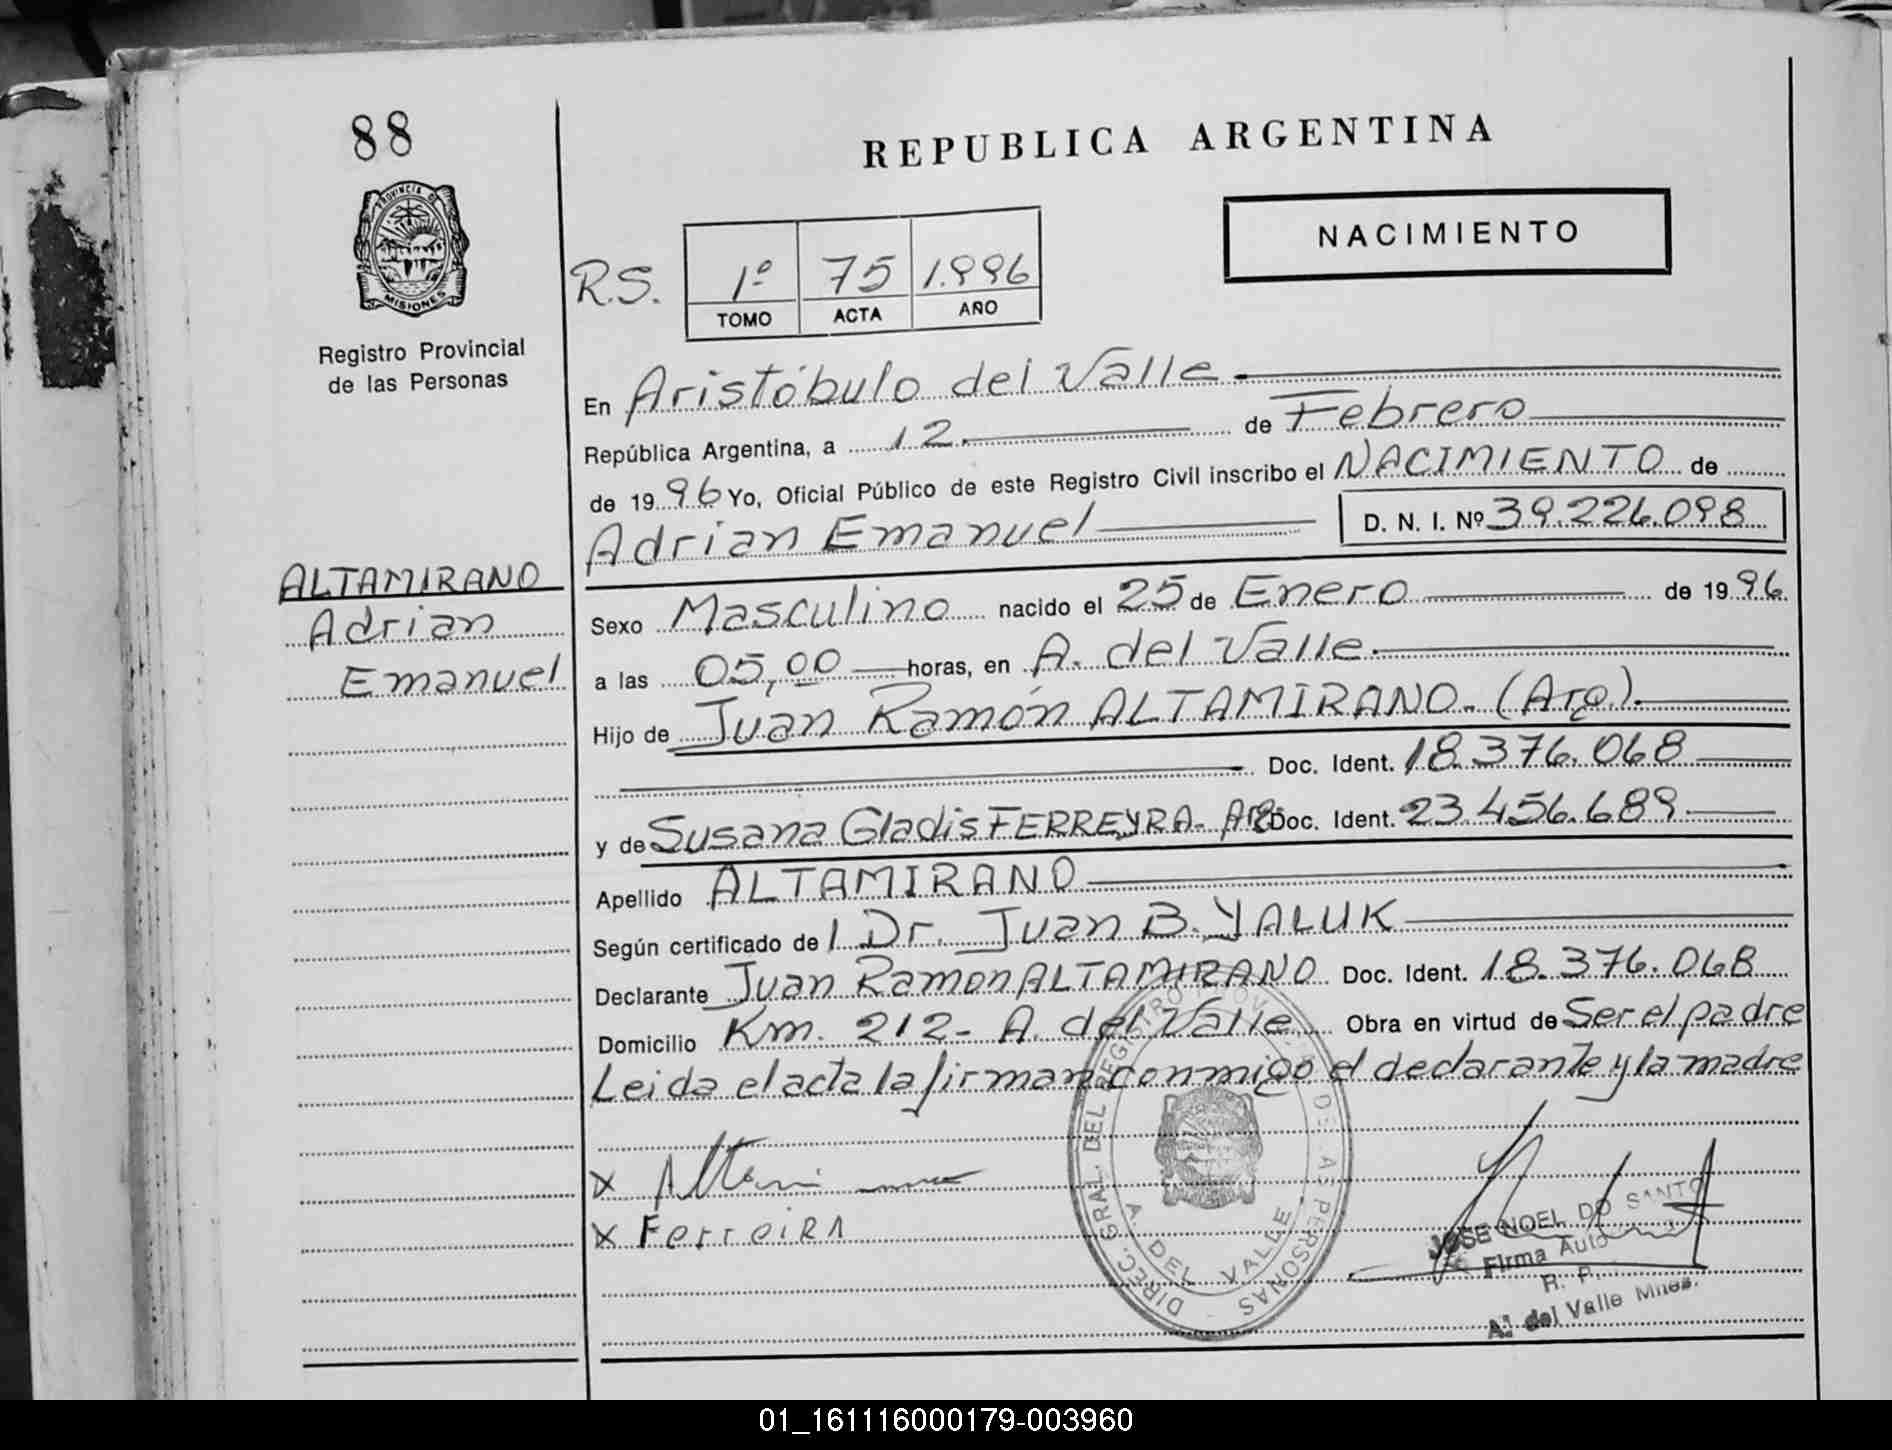 88
REPUBLICA ARGENTINA
PROVINCIA DE
MISIONES
NACIMIENTO
R.S. 1º 75 1.996
TOMO ACTA AÑO
Registro Provincial
de las Personas
En Aristóbulo del Valle
República Argentina, a 12. de Febrero
de 1996 Yo, Oficial Público de este Registro Civil inscribo el NACIMIENTO de
Adrian Emanuel D. N. I. Nº 39.226.098
ALTAMIRANO
Adrian
Emanuel
Sexo Masculino nacido el 25 de Enero de 1996
a las 05,00 horas, en A. del Valle.
Hijo de Juan Ramón ALTAMIRANO. (Arg).
Doc. Ident. 18.376.068
y de Susana Gladis FERREYRA- Arg Doc. Ident. 23.456.689
Apellido ALTAMIRANO
Según certificado de l Dr. Juan B. YALUK
Declarante Juan Ramon ALTAMIRANO Doc. Ident. 18.376.068
Domicilio Km. 212- A. del Valle Obra en virtud de Ser el padre
Leida el acta la firman conmigo el declarante y la madre
X
X FerreirA
DIREC. GRAL. DEL REGISTRO PROV. DE LAS PERSONAS
A. DEL VALLE
JOSE NOEL DO SANTO
Firma Auto
R. P.
A. del Valle Mnes.
01_161116000179-003960